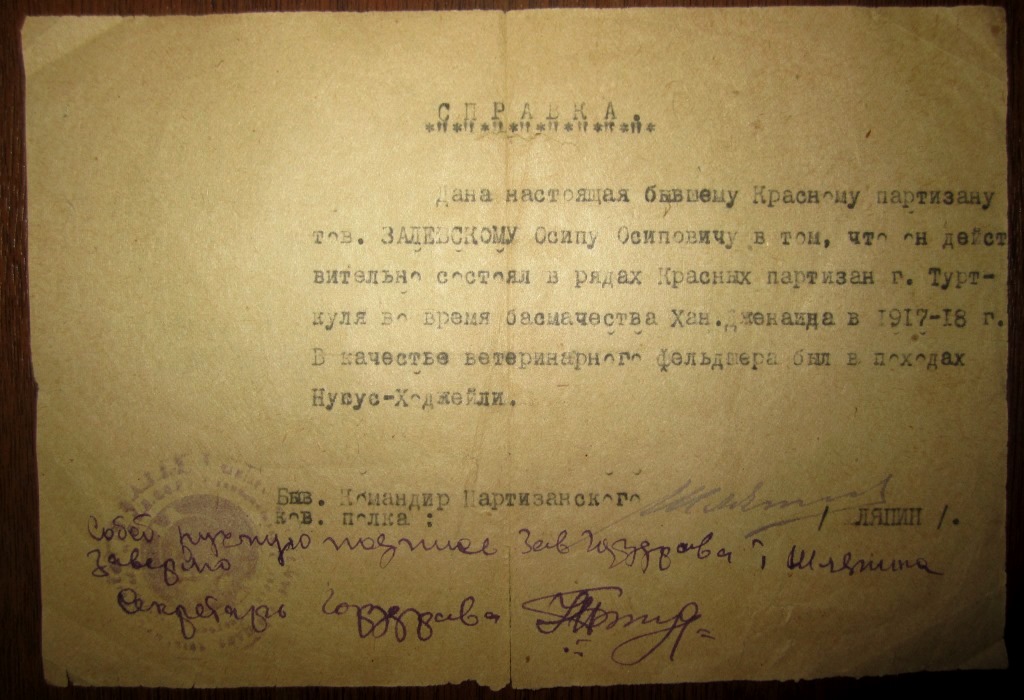 СПРАВКА.
*"*"*"*"*"*"*"*"*
Дана настоящая бывшему Красному партизану
тов. ЗАЛЕВСКОМУ Осипу Осиповичу в том, что он дейст
вительно состоял в рядах Красных партизан г. Турт-
куля во время басмачества Хан.Дженаида в 1917-18 г.
В качестве ветеринарного фельдшера был в походах
Нукус-Ходжейли.
Быв. Командир Партизанского
ков. полка :
/ ЛЯПИН /.
Зав Горздрава т Шляпина
Заверяю
Секретарь Горздрава